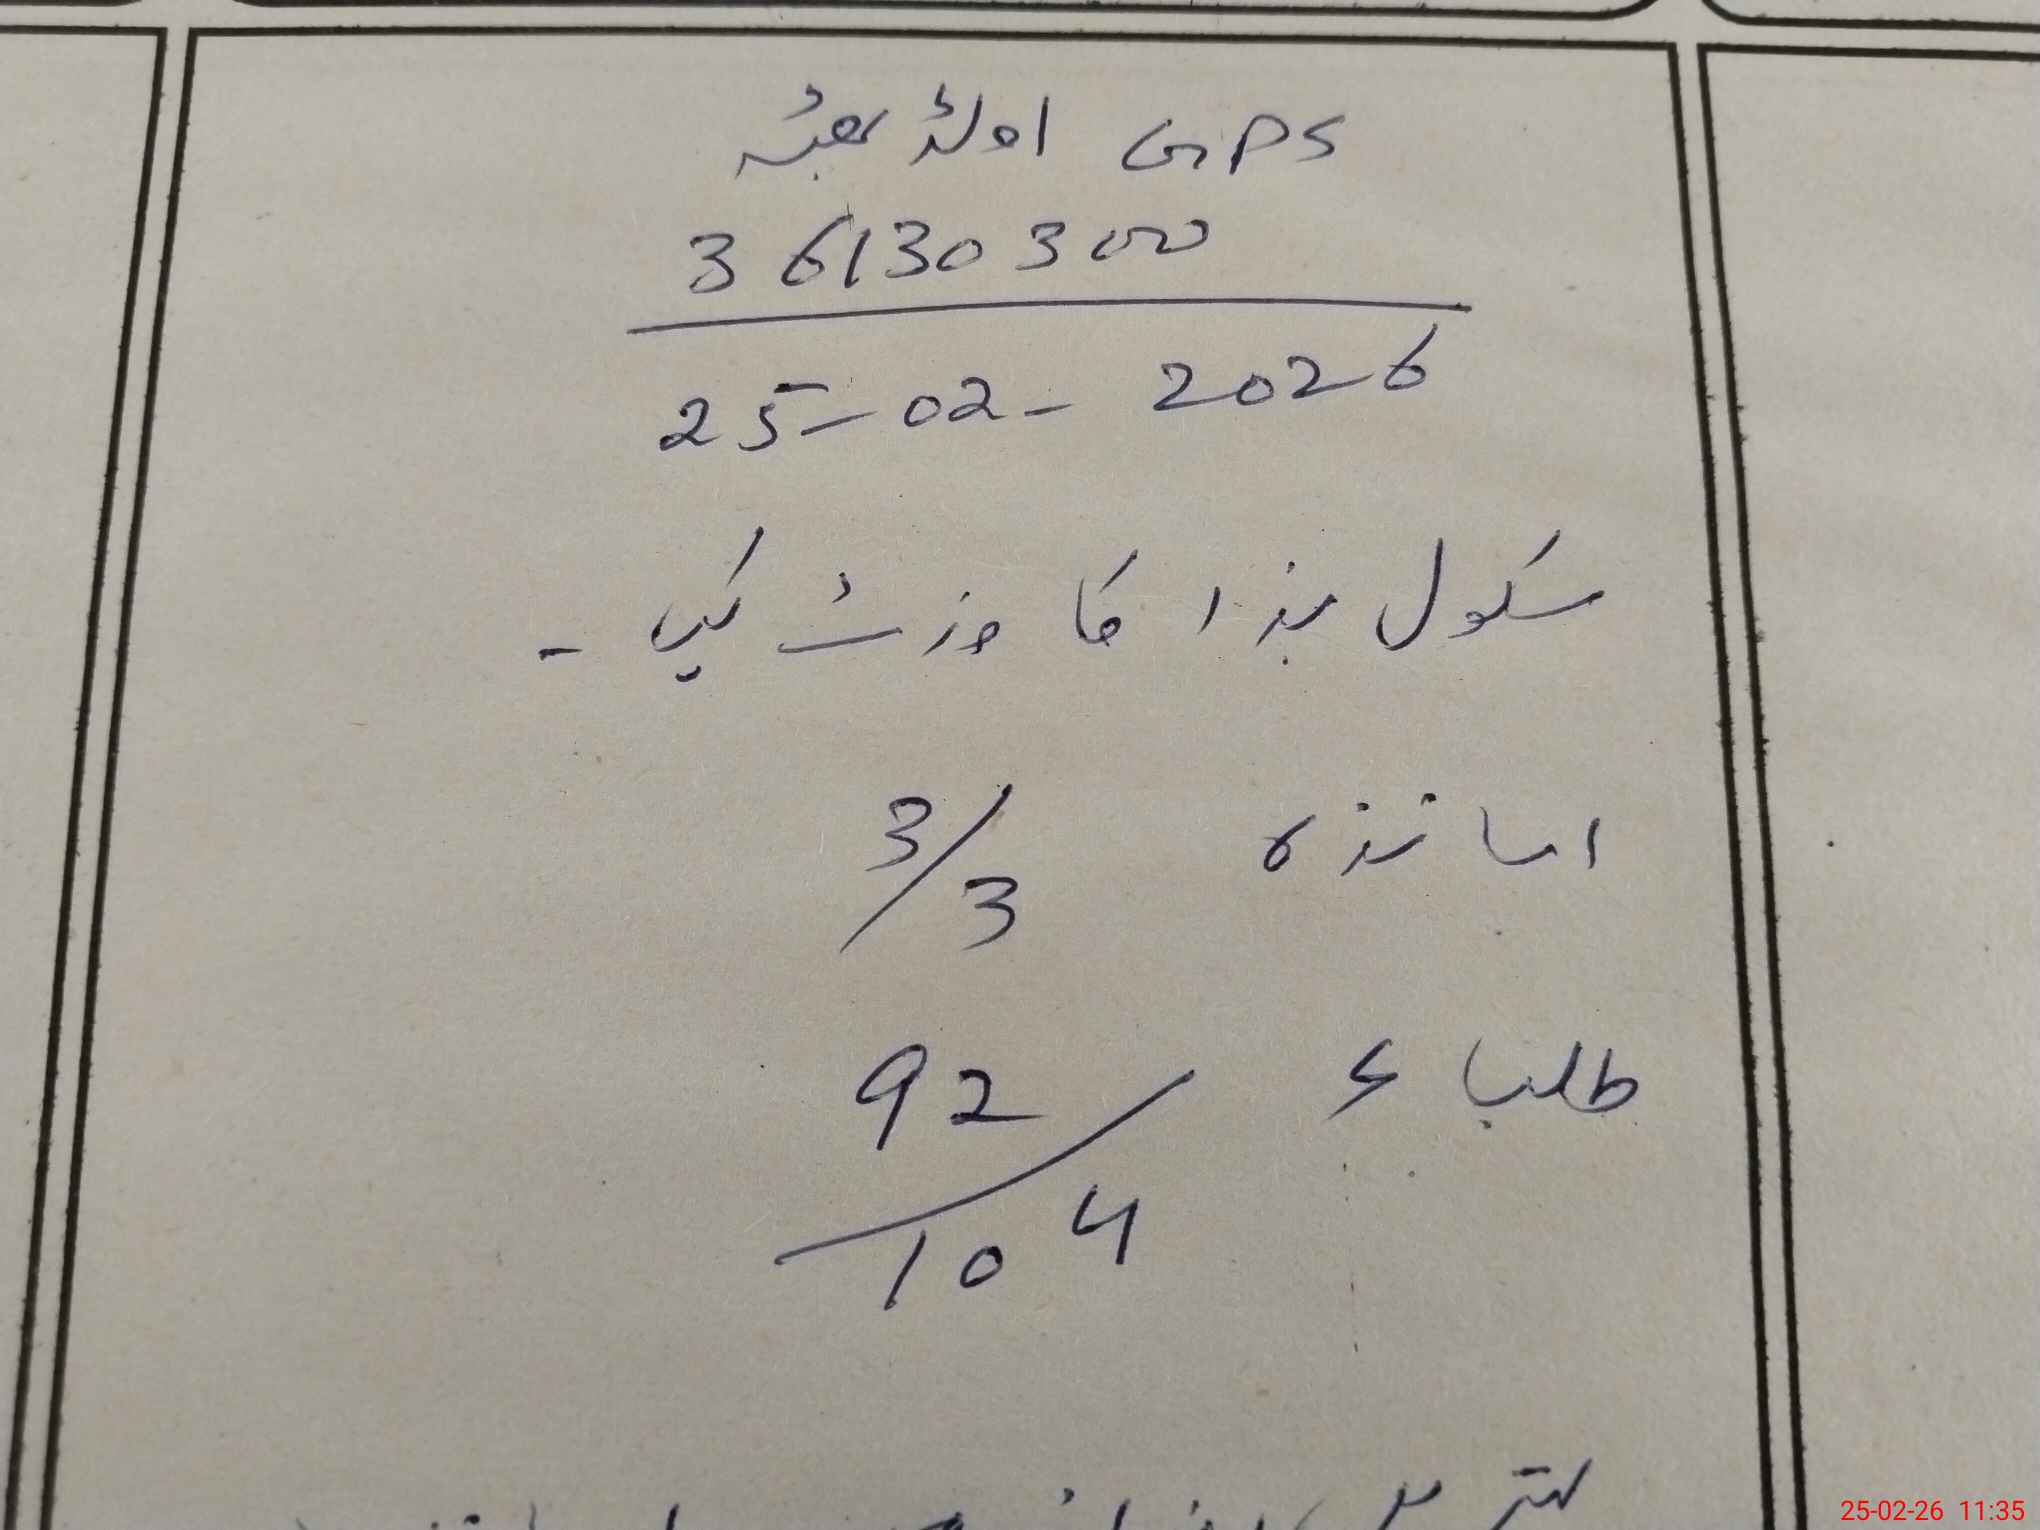 GPS اولڈ بھٹہ
36130300
25-02-2026
سکول ہذا کا وزٹ کیا ۔
اساتذہ 3/3
طلباء 92/104
25-02-26 11:35